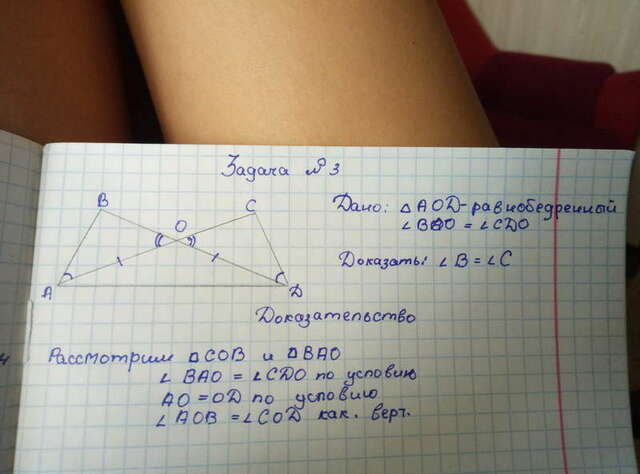 Задача №3
B
C
O
A
D
Дано: △AOD-равнобедренный
∠BAO = ∠CDO
Доказать: ∠B = ∠C
Доказательство
Рассмотрим △COB и △BAO
∠BAO = ∠CDO по условию
AO = OD по условию
∠AOB = ∠COD как. верт.